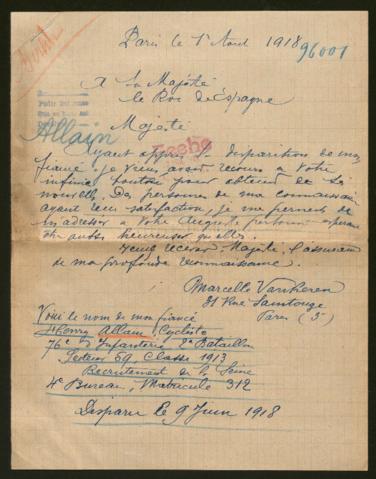 Paris le 1r Aout 1918
96001
A Sa Majesté
le Roi d'Espagne
Allain
Majesté
Ayant appris la disparition de mon
fiancé je viens avoir recours à votre
infinie bonté pour obtenir de ses
nouvelles. Des personnes de ma connaissance
ayant reçu satisfaction, je me permets de
m'adresser à votre Auguste personne
être aussi heureuse qu'elles.
recevoir Majesté l'assurance
de ma profonde reconnaissance.
Marcelle
31 Rue Santonge
Paris (3e)
Voici le nom de mon fiancé
Henry Allain, Cycliste
76e d'Infanterie 2e Bataillon
Secteur 59, Classe 1913
Recrutement de la Seine
4e Bureau, Matricule 312
Disparu le 9 Juin 1918